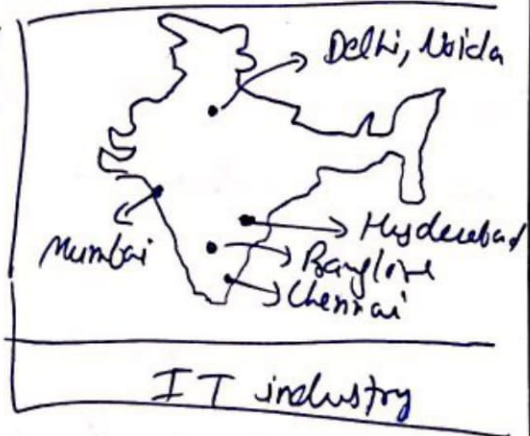 Delhi, Noida
Mumbai
Hyderabad
Banglore
Chennai
IT industry